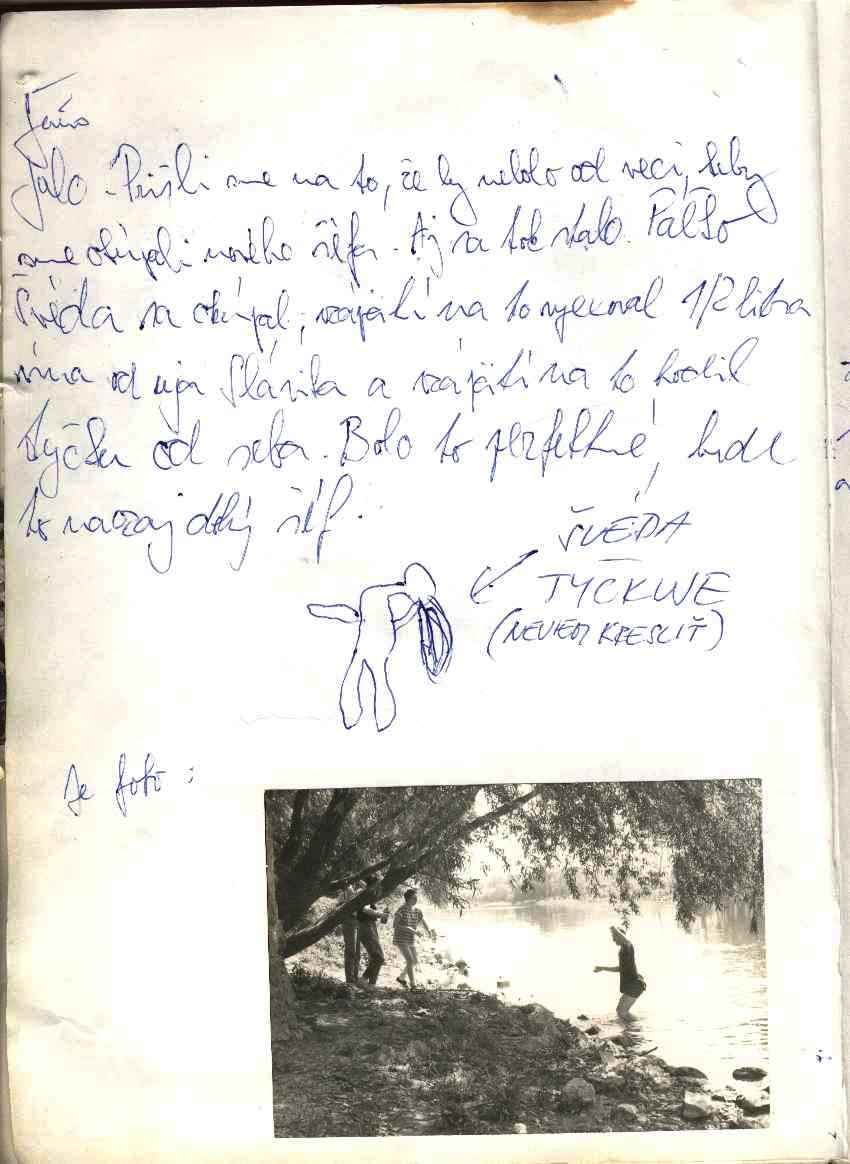 Jalo. Prišli sme na to, že by nebolo od veci, keby
sme okúpali nového šéfa. Aj sa tak stalo. Palšo
Švéda sa okúpal, vzápätí na to vyexoval 1/2 litra
vína od uja Slávika a vzápätí na to hodil
tyčku od seba. Bolo to perfektné, bude
to naozaj dobrý šéf.
ŠVÉDA
TYČKUJE
(NEVIEM KRESLIŤ)
Je foto: